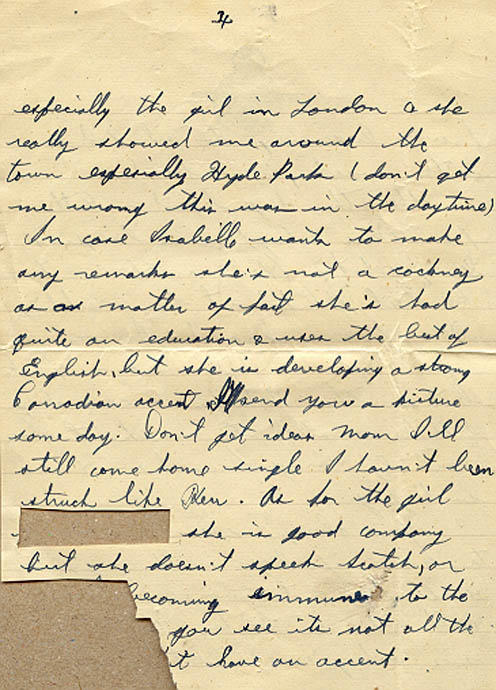 4
especially the girl in London & she
really showed me around the
town especially Hyde Park (don't get
me wrong this was in the daytime)
In case Isabell wants to make
any remarks she's not a cockney
as a matter of fact she's had
quite an education & uses the best of
English, but she is developing a strong
Canadian accent. I'll send you a picture
some day. Don't get ideas Mom I'll
still come home single I haven't been
struck like Ken. As for the girl
she is good company
but she doesn't speak Scotch, or
becoming immune to the
you see its not all the
t have an accent.